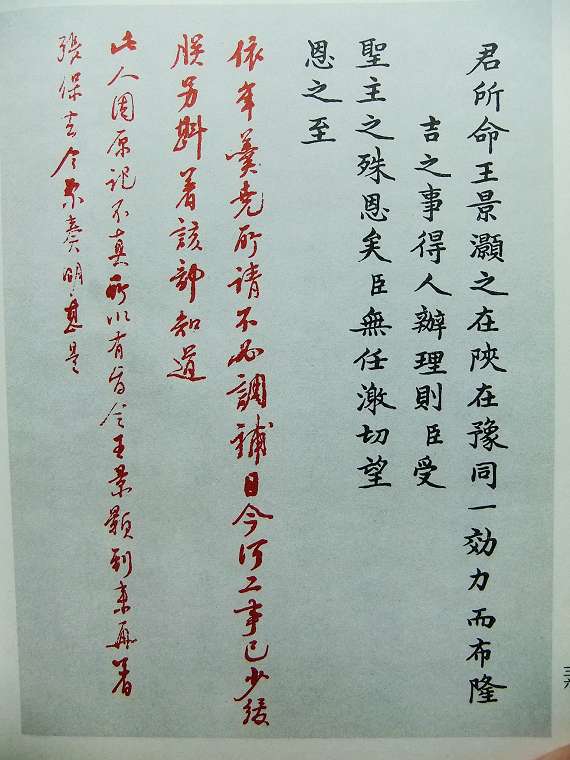 君所命王景灝之在陝在豫同一効力而布隆
吉之事得人辦理則臣受
聖主之殊恩矣臣無任激切望
恩之至
依年羹堯所請不必調補目今河工事已少緩
朕另斟着該部知道
此人因原記不真所以有旨今王景顥到来再着
張保去今栗奏明甚是
三六